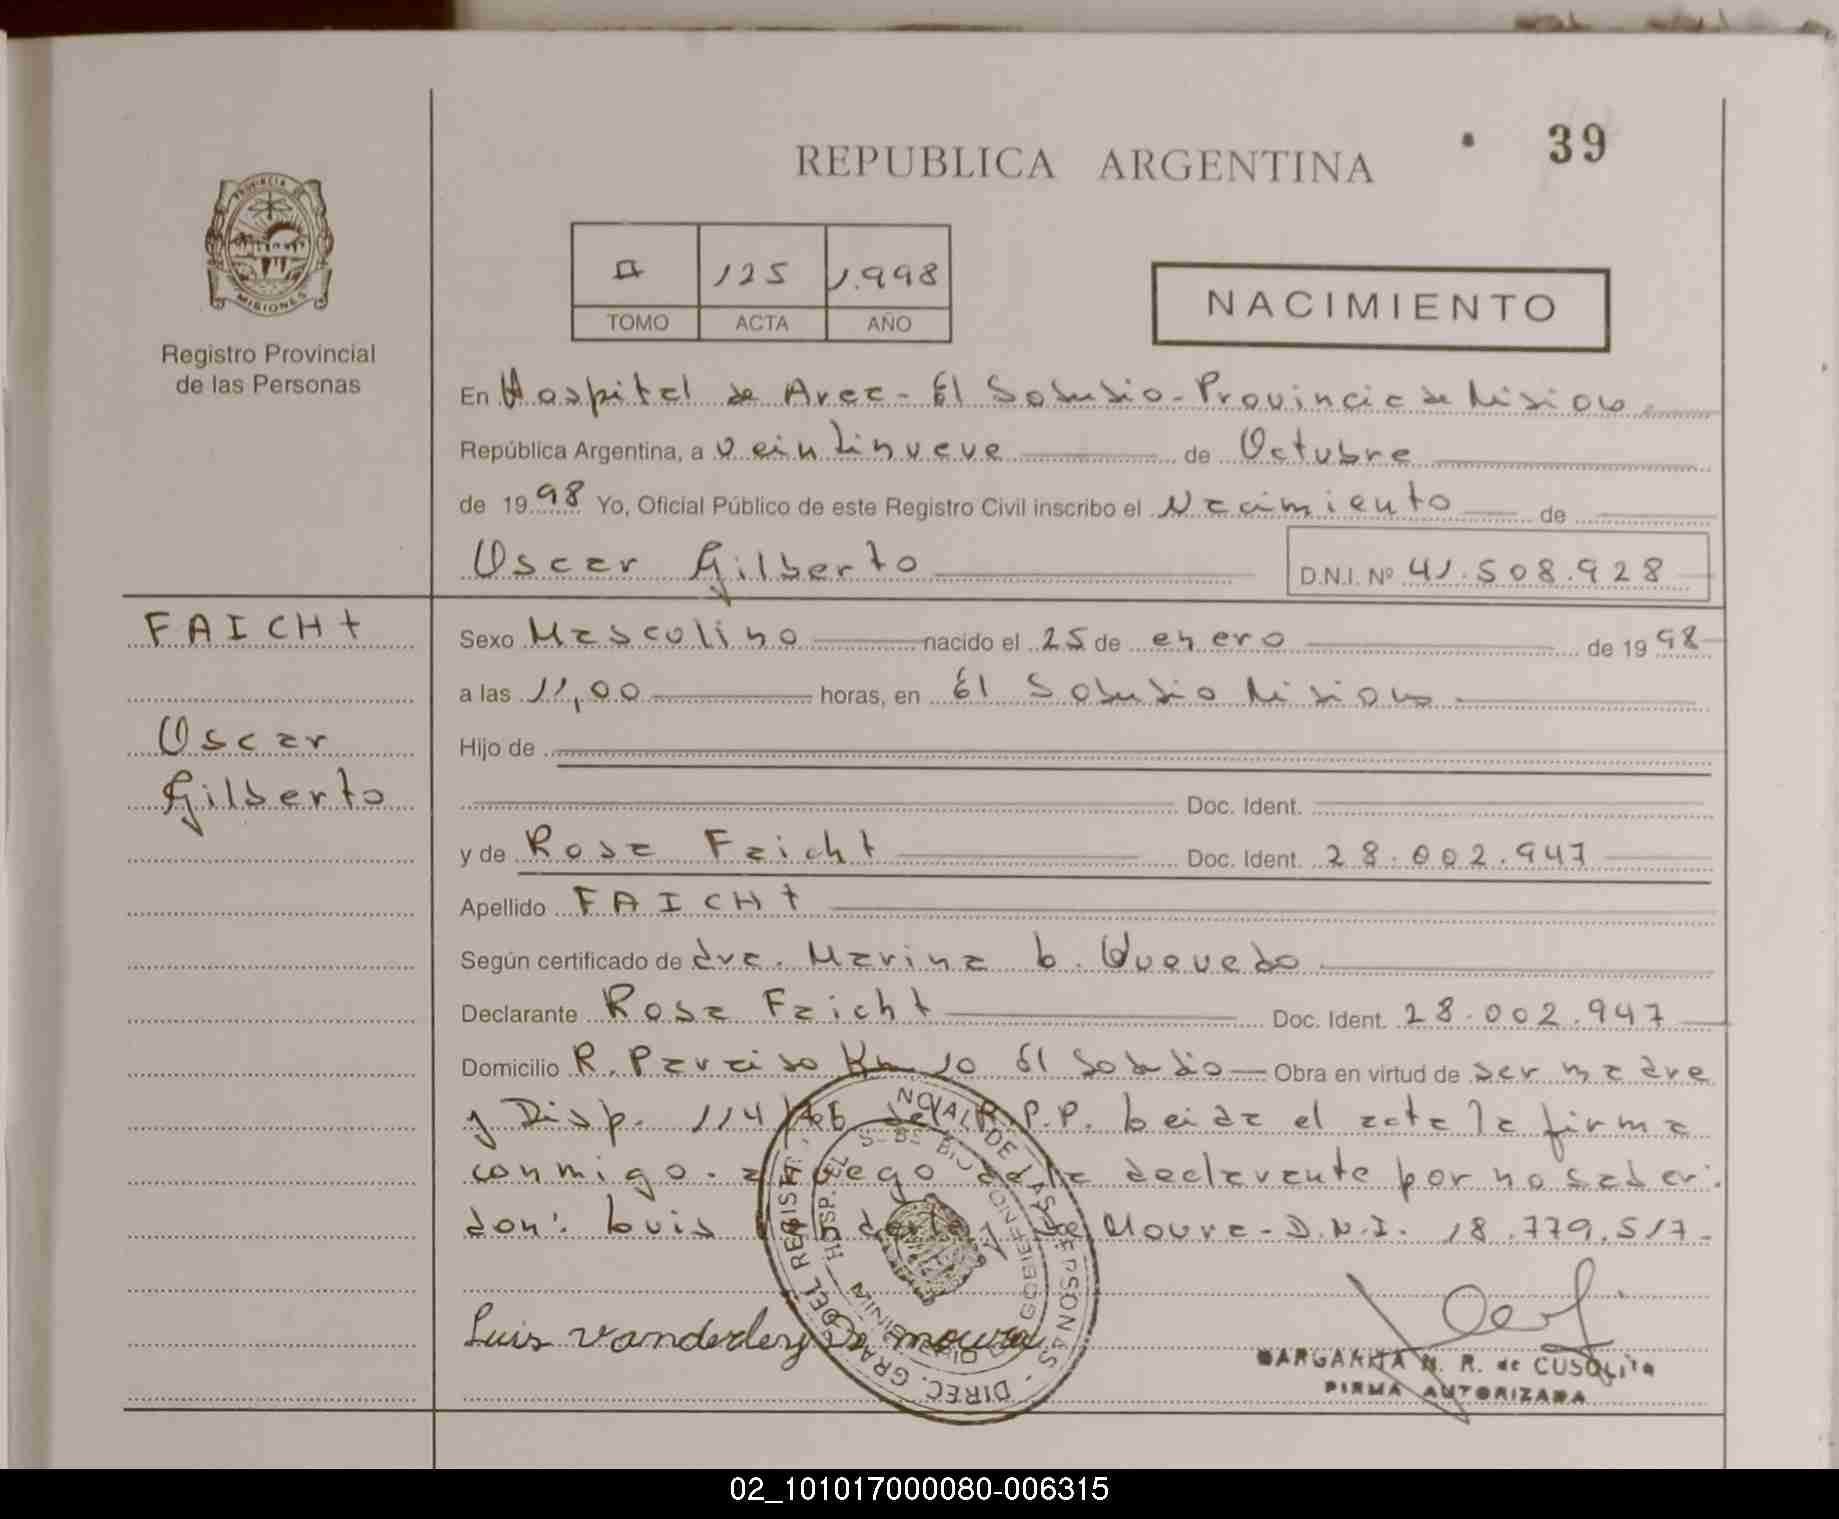 REPUBLICA ARGENTINA
39
PROVINCIA DE
MISIONES
Registro Provincial
de las Personas
125 1.998
TOMO ACTA AÑO
NACIMIENTO
En Hospital de Area - El Soberbio - Provincia de Misiones
República Argentina, a veintinueve de Octubre
de 1998 Yo, Oficial Público de este Registro Civil inscribo el Nacimiento de
Oscar Gilberto D.N.I. Nº 41.508.928
FAICHt
Oscar
Gilberto
Sexo Masculino nacido el 25 de enero de 1998
a las 11,00 horas, en El Soberbio Misiones
Hijo de
Doc. Ident.
y de Rosa Faicht Doc. Ident. 28.002.947
Apellido FAICHt
Según certificado de dra. Marina b. Quevedo
Declarante Rosa Faicht Doc. Ident. 28.002.947
Domicilio R. Paraiso Km 10 El Soberbio Obra en virtud de ser madre
y Disp. 114/ del R.P.P. Leida el acta la firma
conmigo. a ruego de la declarante por no saber:
don: Luis de Moura - D.N.I. 18.779.517-
Luis vanderley De moura
MARGARITA N. R. de CUSOLITO
FIRMA AUTORIZADA
DIREC. GRAL. DEL REGIST. PROVINCIAL DE LAS PERSONAS
MINISTERIO DE GOBIERNO
HOSP. EL SOBERBIO
02_101017000080-006315